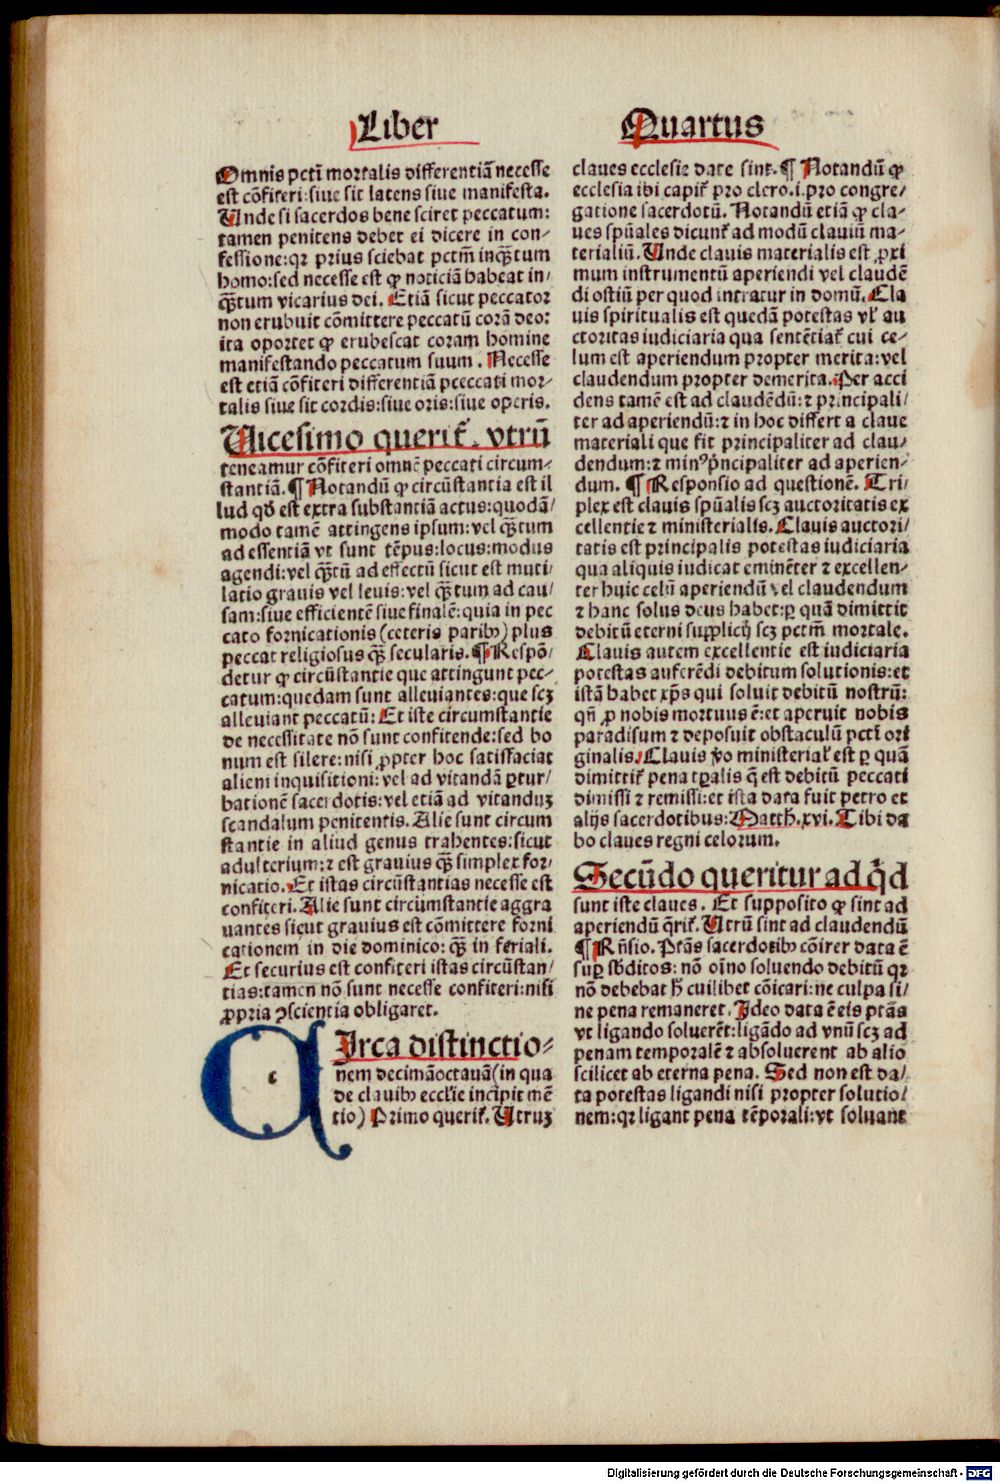 Liber
Quartus
Omnis pctī mortalis differentiā necesse
est cōfiteri: siue sit latens siue manifesta.
Unde si sacerdos bene sciret peccatum:
tamen penitens debet ei dicere in con-
fessione: qꝛ prius sciebat pctm̄ inqꝫtum
homo: sed necesse est ꝙ noticiā habeat in/
qꝫtum vicarius dei. Etiā sicut peccator
non erubuit cōmittere peccatū corā deo:
ita oportet ꝙ erubescat coram homine
manifestando peccatum suum. Necesse
est etiā cōfiteri differentiā pceccati mor-
talis siue sit cordis: siue oris: siue operis.
Uicesimo querit᷑. vtrū
teneamur cōfiteri omnē peccati circum-
stantiā. ¶ Notandū ꝙ circūstantia est il
lud qd̄ est extra substantiā actus: quodā/
modo tamē attingens ipsum: vel qꝫtum
ad essentiā vt sunt tēpus: locus: modus
agendi: vel qꝫtū ad effectū sicut est muti/
latio grauis vel leuis: vel qꝫtum ad cau/
sam: siue efficientē siue finalē: quia in pec
cato fornicationis (ceteris paribꝰ) plus
peccat religiosus qꝫ secularis. ¶ Respō/
detur ꝙ circūstantie que attingunt pec-
catum: quedam sunt alleuiantes: que scꝫ
alleuiant peccatū: Et iste circumstantie
de necessitate nō sunt confitende: sed bo
num est silere: nisi ꝓpter hoc satisfaciat
alieni inquisitioni: vel ad vitandā ꝑtur/
bationē sacerdotis: vel etiā ad vitanduꝫ
scandalum penitentis. Alie sunt circum
stantie in aliud genus trahentes: sicut
adulterium: ⁊ est grauius qꝫ simplex for/
nicatio. Et istas circūstantias necesse est
confiteri. Alie sunt circumstantie aggra
uantes sicut grauius est cōmittere forni
cationem in die dominico: qꝫ in feriali.
Et securius est confiteri istas circūstan/
tias: tamen nō sunt necesse confiteri: nisi
ꝓpria ꝯscientia obligaret.
CIrca distinctio-
nem decimāoctauā (in qua
de clauibꝰ ecclie incipit mē
tio) Primo querit᷑. Utruꝫ
claues ecclesie date sint. ¶ Notandū ꝙ
ecclesia ibi capit᷑ pro clero. i. pro congre/
gatione sacerdotū. Notandū etiā ꝙ cla-
ues spūales dicunt᷑ ad modū clauiū ma-
terialiū. Unde clauis materialis est ꝓxi
mum instrumentū aperiendi vel claudē
di ostiū per quod intratur in domū. Cla
uis spiritualis est quedā potestas vl᷑ au
ctoritas iudiciaria qua sentētiat᷑ cui ce-
lum est aperiendum propter merita: vel
claudendum propter demerita. Per acci
dens tamē est ad claudēdū: ⁊ principali/
ter ad aperiendū: ⁊ in hoc differt a claue
materiali que fit principaliter ad clau/
dendum: ⁊ minꝰ pͥncipaliter ad aperien-
dum. ¶ Responsio ad questionē. Tri/
plex est clauis spūalis scꝫ auctoritatis ex
cellentie ⁊ ministerialis. Clauis auctori/
tatis est principalis potestas iudiciaria
qua aliquis iudicat eminēter ⁊ excellen-
ter huic celū aperiendū vel claudendum
⁊ hanc solus deus habet: ꝑ quā dimittit
debitū eterni supplicij scꝫ pctm̄ mortale.
Clauis autem excellentie est iudiciaria
potestas auferēdi debitum solutionis: et
istā habet xp̄s qui soluit debitū nostrū:
qn̄ ꝓ nobis mortuus ē: et aperuit nobis
paradisum ⁊ deposuit obstaculū pctī ori
ginalis. Clauis ꝟo ministerial᷑ est ꝑ quā
dimittit᷑ pena tꝑalis q̄ est debitū peccati
dimissi ⁊ remissi: et ista data fuit petro et
alijs sacerdotibus: Matth̄. xvi. Tibi da
bo claues regni celorum.
Secūdo queritur ad qͥd
sunt iste claues. Et supposito ꝙ sint ad
aperiendū q̄rit᷑. Utrū sint ad claudendū
¶ Rn̄sio. Ptās sacerdotibꝰ cōiter data ē
suꝑ sb̄ditos: nō oīno soluendo debitū qꝛ
nō debebat h̄ cuilibet cōicari: ne culpa si/
ne pena remaneret. Ideo data ē eis ptās
vt ligando soluerēt: ligādo ad vnū scꝫ ad
penam temporalē ⁊ absoluerent ab alio
scilicet ab eterna pena. Sed non est da/
ta potestas ligandi nisi propter solutio/
nem: qꝛ ligant pena tēporali: vt soluant
Digitalisierung gefördert durch die Deutsche Forschungsgemeinschaft - DFG